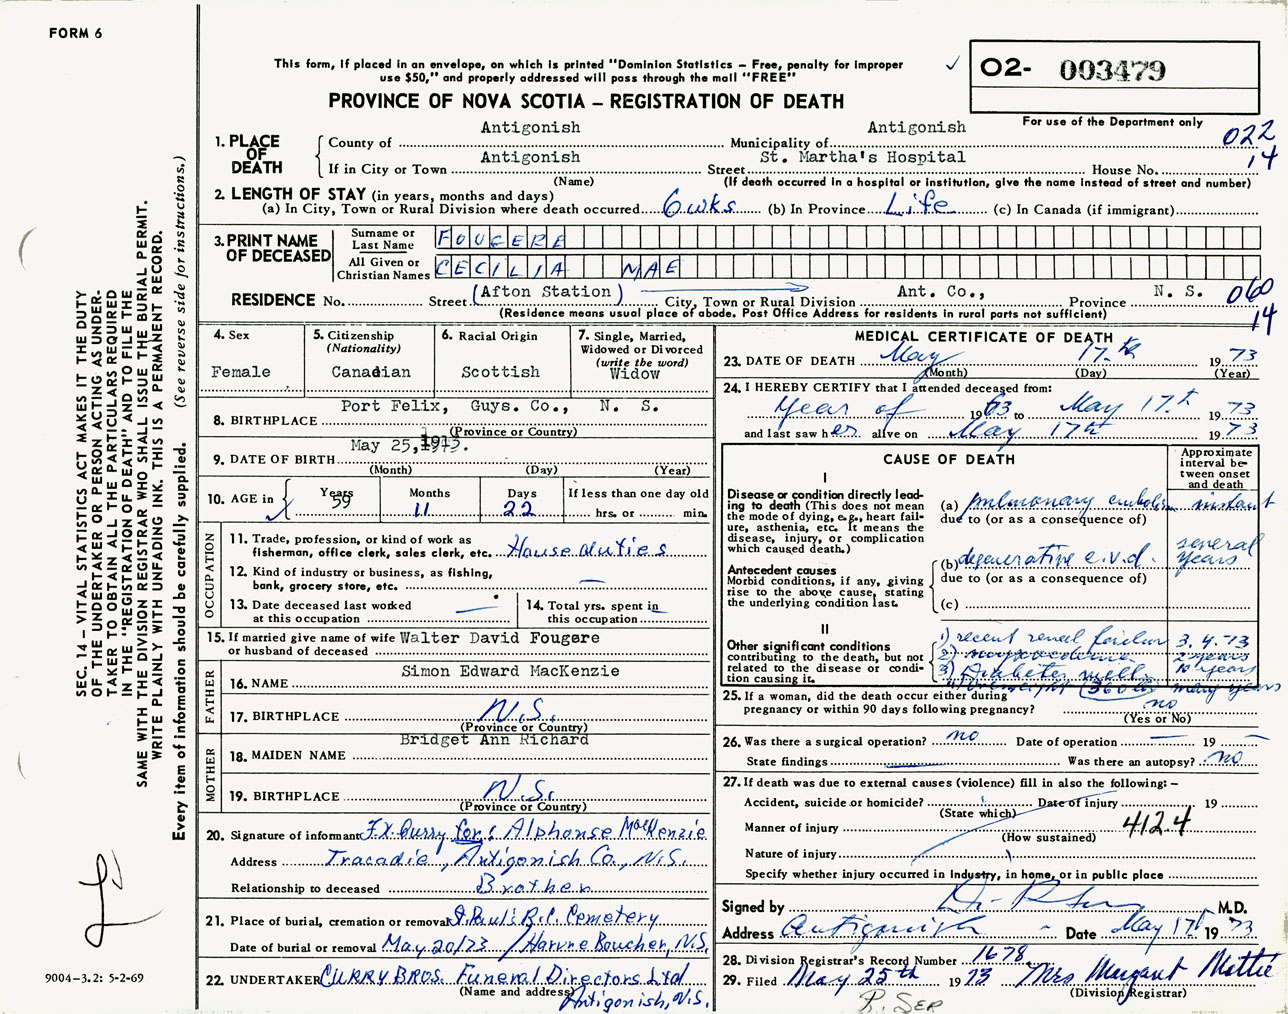 FORM 6
This form, if placed in an envelope, on which is printed "Dominion Statistics – Free, penalty for improper
use $50," and properly addressed will pass through the mail "FREE"
✓ O2- 003479
PROVINCE OF NOVA SCOTIA – REGISTRATION OF DEATH
For use of the Department only
022
14
1. PLACE OF DEATH
County of Antigonish Municipality of Antigonish
If in City or Town Antigonish Street St. Martha's Hospital House No.
(Name) (If death occurred in a hospital or institution, give the name instead of street and number)
2. LENGTH OF STAY (in years, months and days)
(a) In City, Town or Rural Division where death occurred 6 wks (b) In Province Life (c) In Canada (if immigrant)
3. PRINT NAME OF DECEASED
Surname or Last Name FOUGERE
All Given or Christian Names CECILIA MAE
RESIDENCE No. Street (Afton Station) City, Town or Rural Division Ant. Co., Province N. S. 060
(Residence means usual place of abode. Post Office Address for residents in rural parts not sufficient) 14
4. Sex
Female
5. Citizenship
(Nationality)
Canadian
6. Racial Origin
Scottish
7. Single, Married,
Widowed or Divorced
(write the word)
Widow
8. BIRTHPLACE Port Felix, Guys. Co., N. S.
(Province or Country)
9. DATE OF BIRTH May 25, 1913.
(Month) (Day) (Year)
10. AGE in Years 59 Months 11 Days 22 If less than one day old
hrs. or min.
OCCUPATION
11. Trade, profession, or kind of work as
fisherman, office clerk, sales clerk, etc. House duties
12. Kind of industry or business, as fishing,
bank, grocery store, etc. —
13. Date deceased last worked
at this occupation —
14. Total yrs. spent in
this occupation —
15. If married give name of wife
or husband of deceased Walter David Fougere
FATHER
16. NAME Simon Edward MacKenzie
17. BIRTHPLACE N.S.
(Province or Country)
MOTHER
18. MAIDEN NAME Bridget Ann Richard
19. BIRTHPLACE N.S.
(Province or Country)
20. Signature of informant F.X. Curry for: Alphonse MacKenzie
Address Tracadie, Antigonish Co., N.S.
Relationship to deceased Brother
21. Place of burial, cremation or removal St. Paul's R.C. Cemetery
Date of burial or removal May 20/73 / Havre Boucher, N.S.
22. UNDERTAKER CURRY BROS. Funeral Directors Ltd
(Name and address) Antigonish, N.S.
MEDICAL CERTIFICATE OF DEATH
23. DATE OF DEATH May 17th 1973
(Month) (Day) (Year)
24. I HEREBY CERTIFY that I attended deceased from:
Year of 1963 to May 17th 1973
and last saw her alive on May 17th 1973
CAUSE OF DEATH
Approximate
interval be-
tween onset
and death
I
Disease or condition directly lead-
ing to death (This does not mean
the mode of dying, e.g., heart fail-
ure, asthenia, etc. It means the
disease, injury, or complication
which caused death.)
(a) pulmonary embolism instant
due to (or as a consequence of)
Antecedent causes
Morbid conditions, if any, giving
rise to the above cause, stating
the underlying condition last.
(b) degenerative c.v.d. several years
due to (or as a consequence of)
(c)
II
Other significant conditions
contributing to the death, but not
related to the disease or condi-
tion causing it.
1) recent renal failure 3.4.73
2) myxoedema 2 years
3) Diabetes mell. 10 years
4) overweight (360 lbs) many years
25. If a woman, did the death occur either during
pregnancy or within 90 days following pregnancy? no
(Yes or No)
26. Was there a surgical operation? no Date of operation — 19 —
State findings — Was there an autopsy? no
27. If death was due to external causes (violence) fill in also the following: –
Accident, suicide or homicide? Date of injury 19
(State which)
Manner of injury 412.4
(How sustained)
Nature of injury
Specify whether injury occurred in industry, in home, or in public place
Signed by M.D.
Address Antigonish Date May 17th 1973
28. Division Registrar's Record Number 1678
29. Filed May 25th 1973 Mrs Margaret Mattie
(Division Registrar)
R. SER
SEC. 14 – VITAL STATISTICS ACT MAKES IT THE DUTY
OF THE UNDERTAKER OR PERSON ACTING AS UNDER-
TAKER TO OBTAIN ALL THE PARTICULARS REQUIRED
IN THE "REGISTRATION OF DEATH" AND TO FILE THE
SAME WITH THE DIVISION REGISTRAR WHO SHALL ISSUE THE BURIAL PERMIT.
WRITE PLAINLY WITH UNFADING INK. THIS IS A PERMANENT RECORD.
Every item of information should be carefully supplied. (See reverse side for instructions.)
9004–3.2: 5-2-69